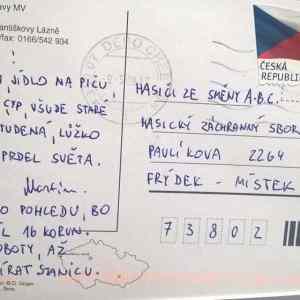 avy MV
antiškovy Lázně
/fax: 0166/542 934
JÍDLO NA PIČU,
CYP, VŠUDE STARÉ
TUDENÁ, LŮŽKO
PRDEL SVĚTA.
Martin.
O POHLEDU, BO
IL 16 KORUN.
BOTY, AŽ
ÍRAT STANICU.
ČESKÁ
REPUBLI
HASIČI ZE SMĚNY A.B.C.
HASICKÝ ZÁCHRANNÝ SBOR
PAVLÍKOVA 2264
FRÝDEK - MÍSTEK
73802